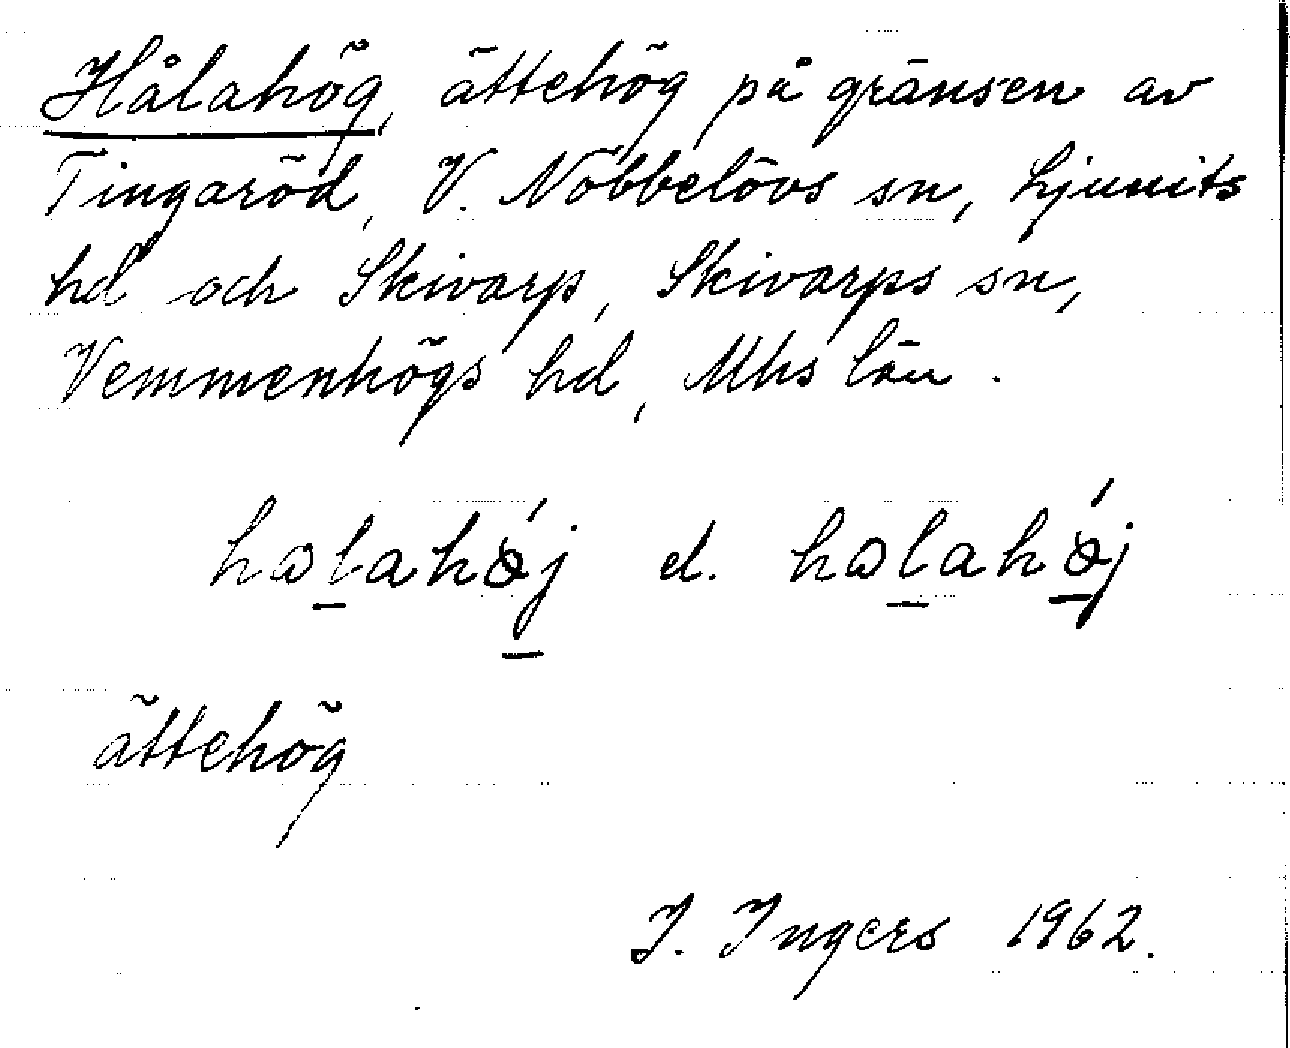 Hålahög, ättehög på gränsen av
Tingaröd, V. Nöbbelövs sn, Ljunits
hd och Skivarp, Skivarps sn,
Vemmenhögs hd, Mhs län.
hɷlahǿj el. hɷlahǿj
ättehög
I. Ingers 1962.